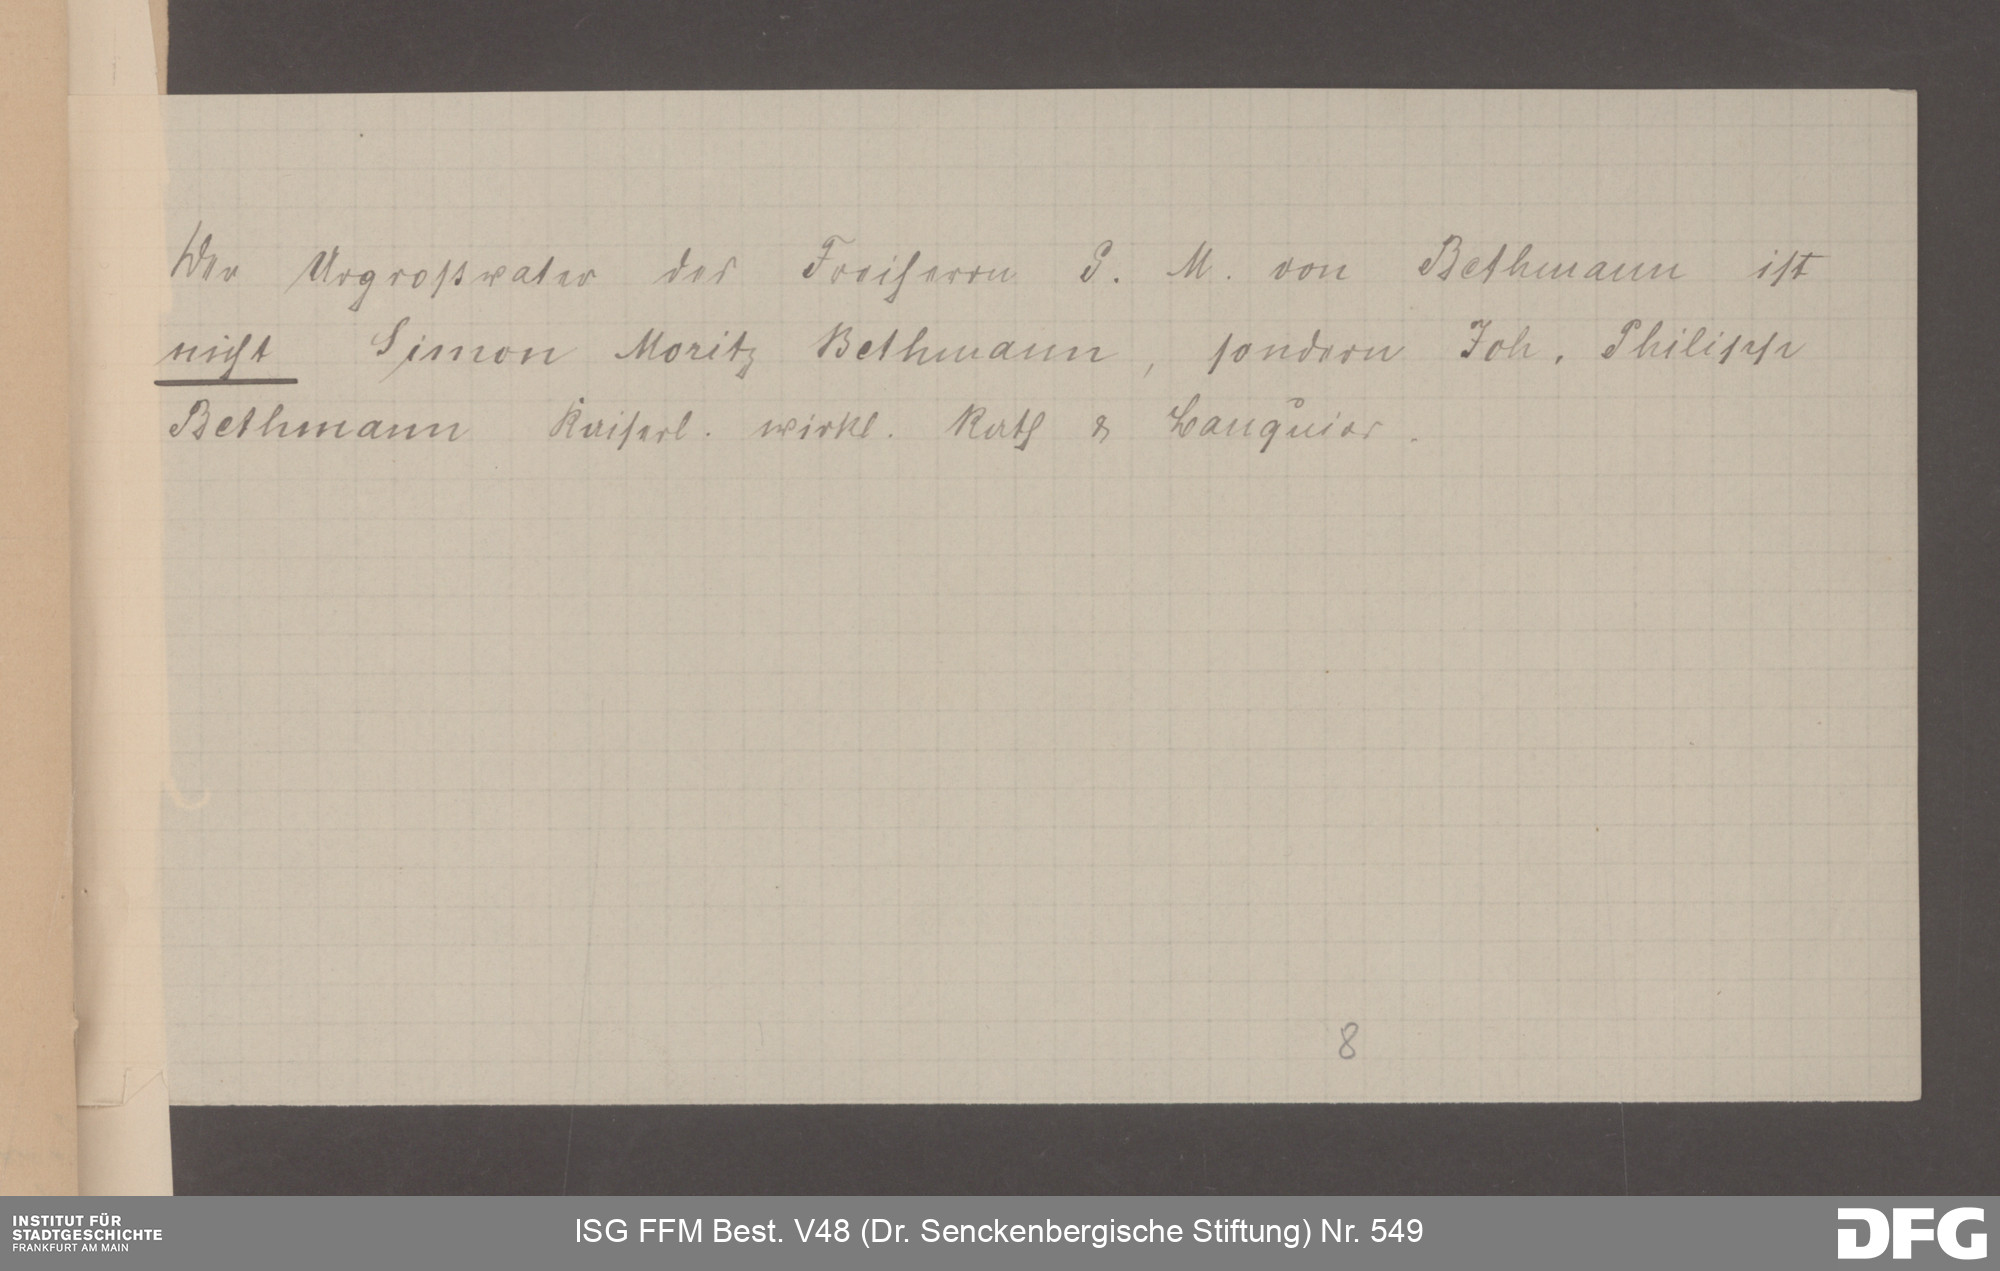 Der Urgroßvater des Freiherrn S. M. von Bethmann ist
nicht Simon Moritz Bethmann, sondern Joh. Philipp
Bethmann Kaiserl. wirkl. Rath & Banquier.
8
INSTITUT FÜR
STADTGESCHICHTE
FRANKFURT AM MAIN
ISG FFM Best. V48 (Dr. Senckenbergische Stiftung) Nr. 549
DFG